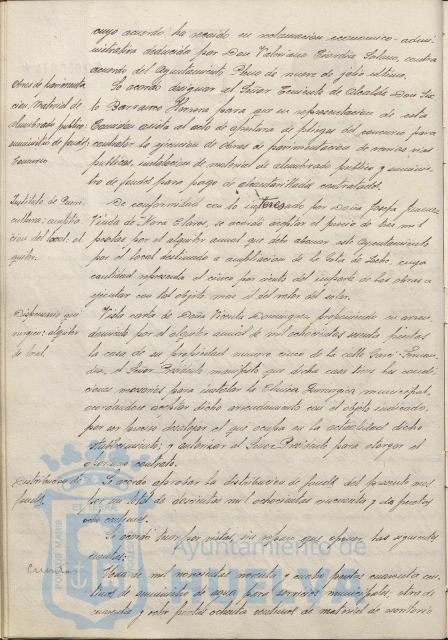 cuyo acuerdo ha recaido su reclamación económico-admi-
nistrativa deducida por Don Valeriano contra
acuerdo del Ayuntamiento Pleno de nueve de julio último.
Obras de pavimenta-
ción: Material de
alumbrado público:
suministro de fondos
Se acordó designar al Señor Teniente de Alcalde Don
Barranco para que en representación de esta
Comisión asista al acto de apertura de pliegos del concurso para
contratar la ejecución de obras de pavimentación de varias vías
públicas, instalación de material de alumbrado público y suminis-
tro de fondos para pago de contratados.
Instituto de Pueri-
cultura: amplia-
ción del local: al-
quiler
De conformidad con lo interesado por Doña Josefa
Viuda de Mora Claros, se acordó aceptar el precio de tres mil
pesetas por el alquiler anual que debe abonar este Ayuntamiento
por el local destinado a ampliación de la Gota de Leche, cuya
cantidad representa el cinco por ciento del importe de las obras a
ejecutar con tal objeto, mas el del valor del solar.
Dispensario qui-
rúrgico: alquiler
de local.
Vista carta de Doña Vicenta Domínguez proponiendo en arren-
damiento por el alquiler anual de mil ochocientas pesetas
la casa de su propiedad número cinco de la calle
el Señor Presidente manifestó que dicha casa tiene las condi-
ciones necesarias para instalar la Clínica Quirúrgica municipal,
acordándose aceptar dicho arrendamiento con el objeto indicado,
por ser preciso desalojar el que ocupa en la actualidad dicho
establecimiento; y autorizar al Señor Presidente para otorgar el
oportuno contrato.
Distribución de
fondos
Se acordó aprobar la distribución de fondos del presente mes
por un total de doscientas mil ochocientas cincuenta y dos pesetas
ocho céntimos.
Se acordó las siguientes
cuentas:
Cuentas
Una de mil novecientas noventa y cuatro pesetas cuarenta cén-
timos de suministro de agua para servicios municipales; otra de
cuarenta y ocho pesetas ochenta céntimos de material de escritorio
EL TERRA
PORTUS MARIS
Ayuntamiento de
HUELVA